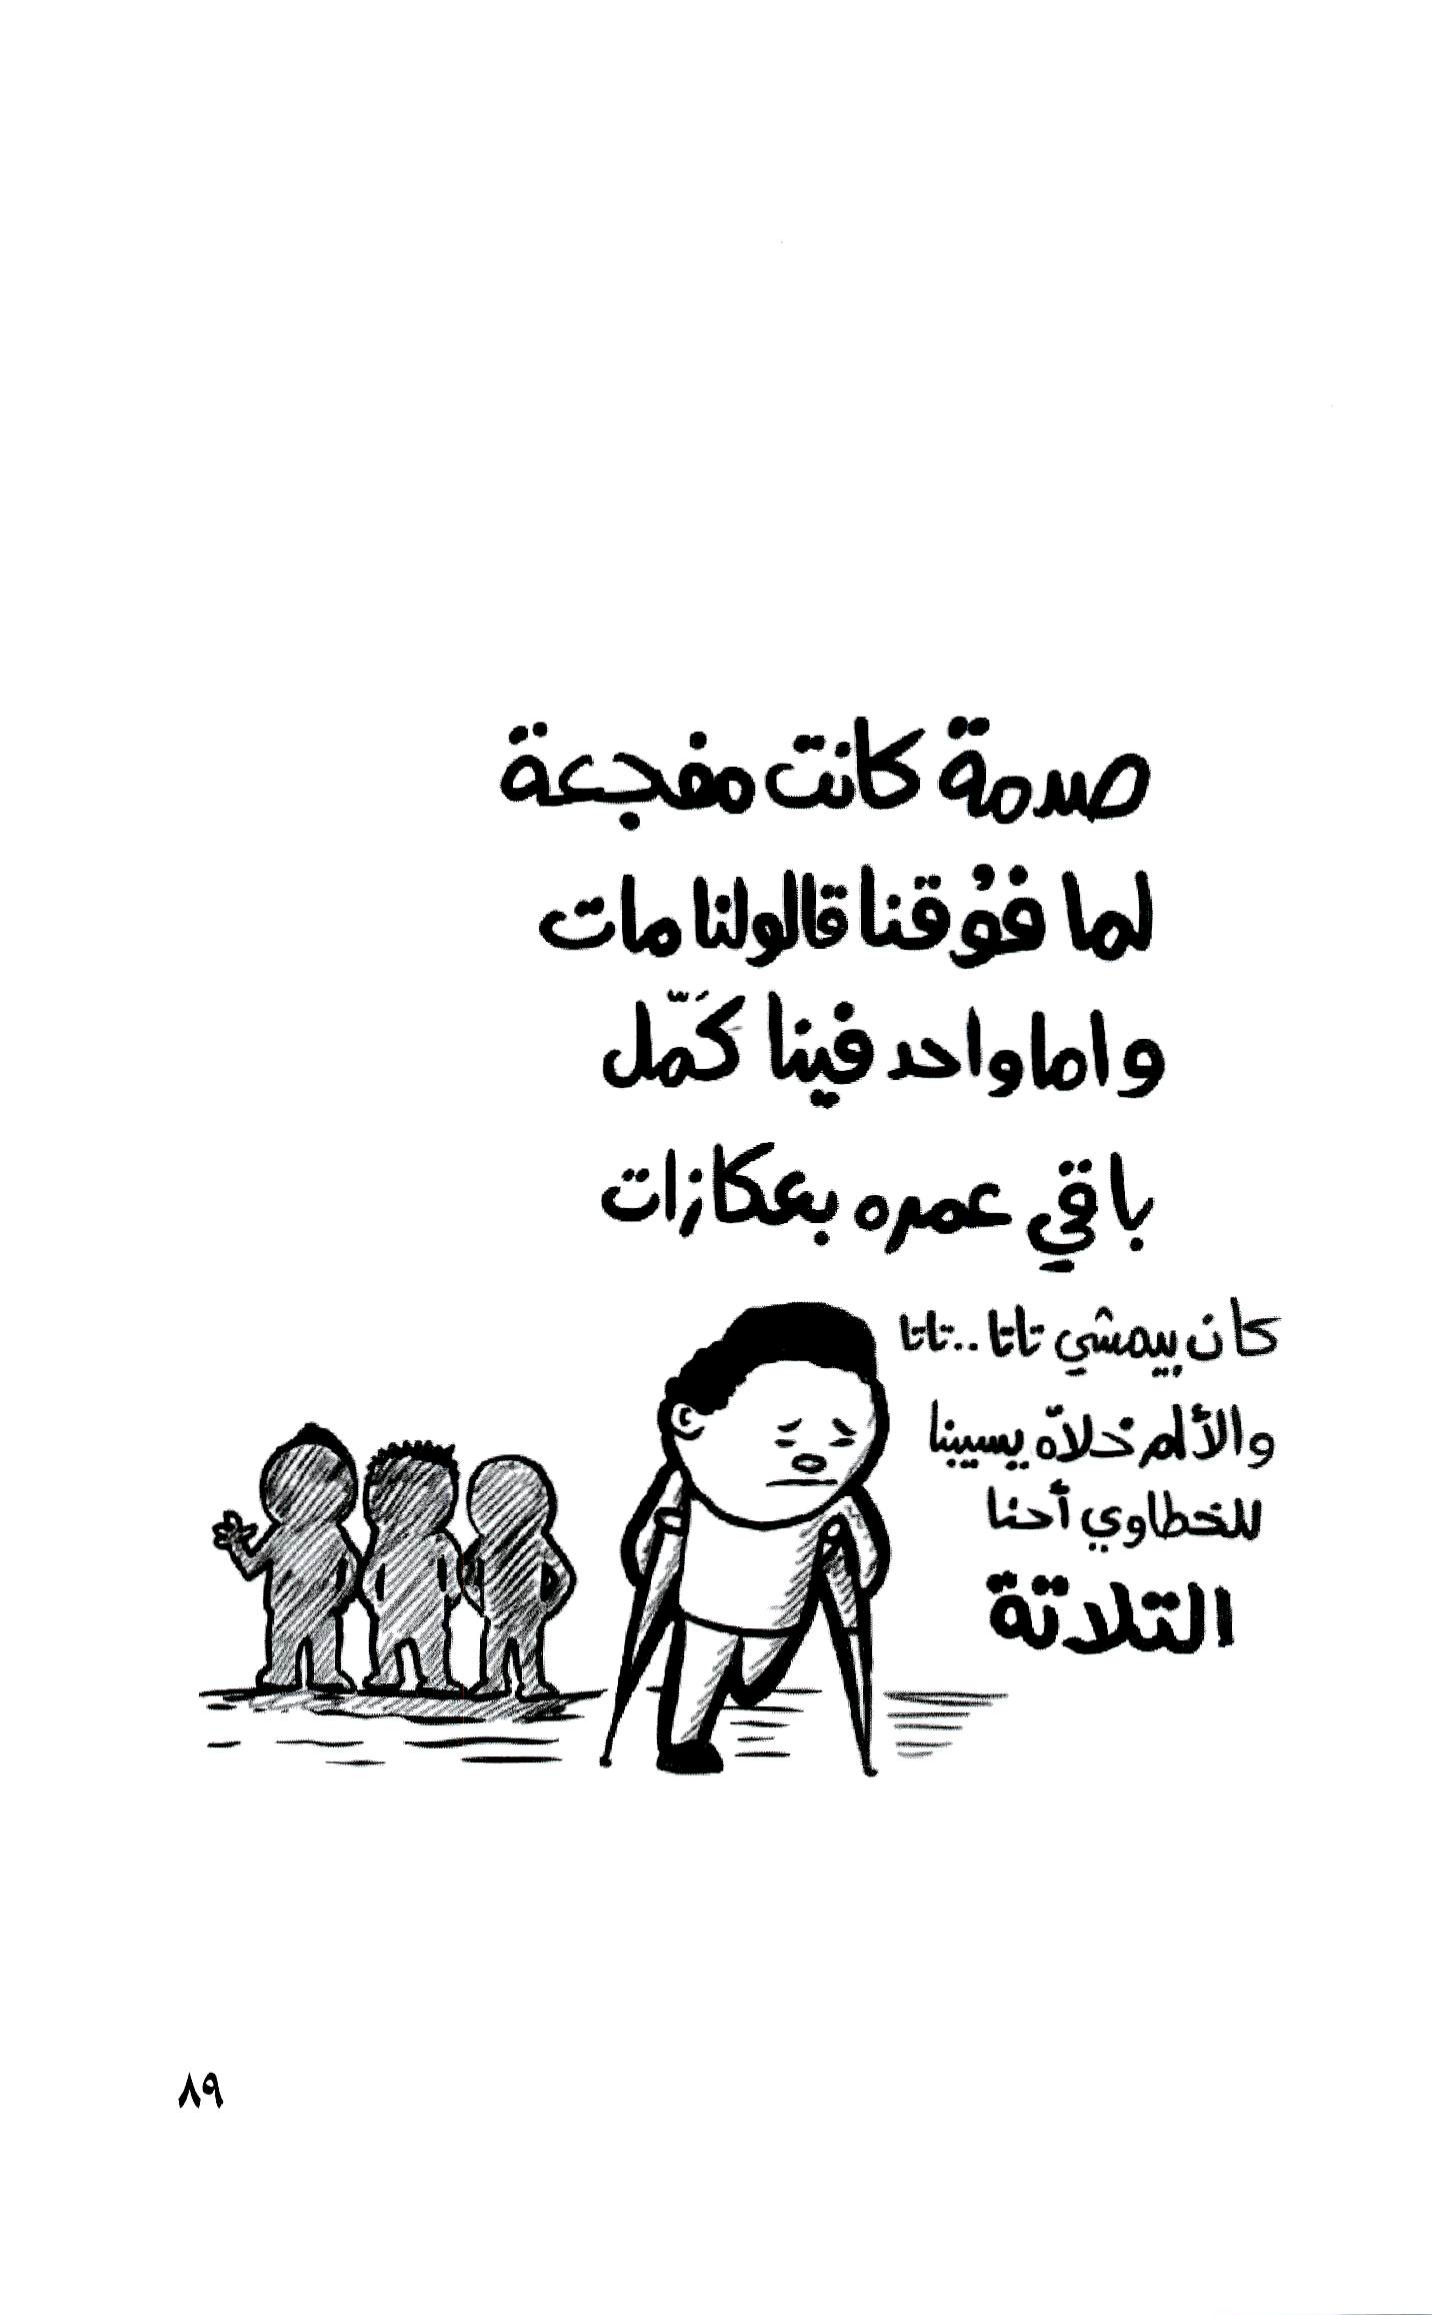 صدمة كانت مفجعة
لما فوُقنا قالولنا مات
واما واحد فينا كَمّل
باقي عمره بعكازات
كان بيمشي تاتا..تاتا
والألم خلاّه يسيبنا
للخطاوي أحنا
التلاتة
٨٩